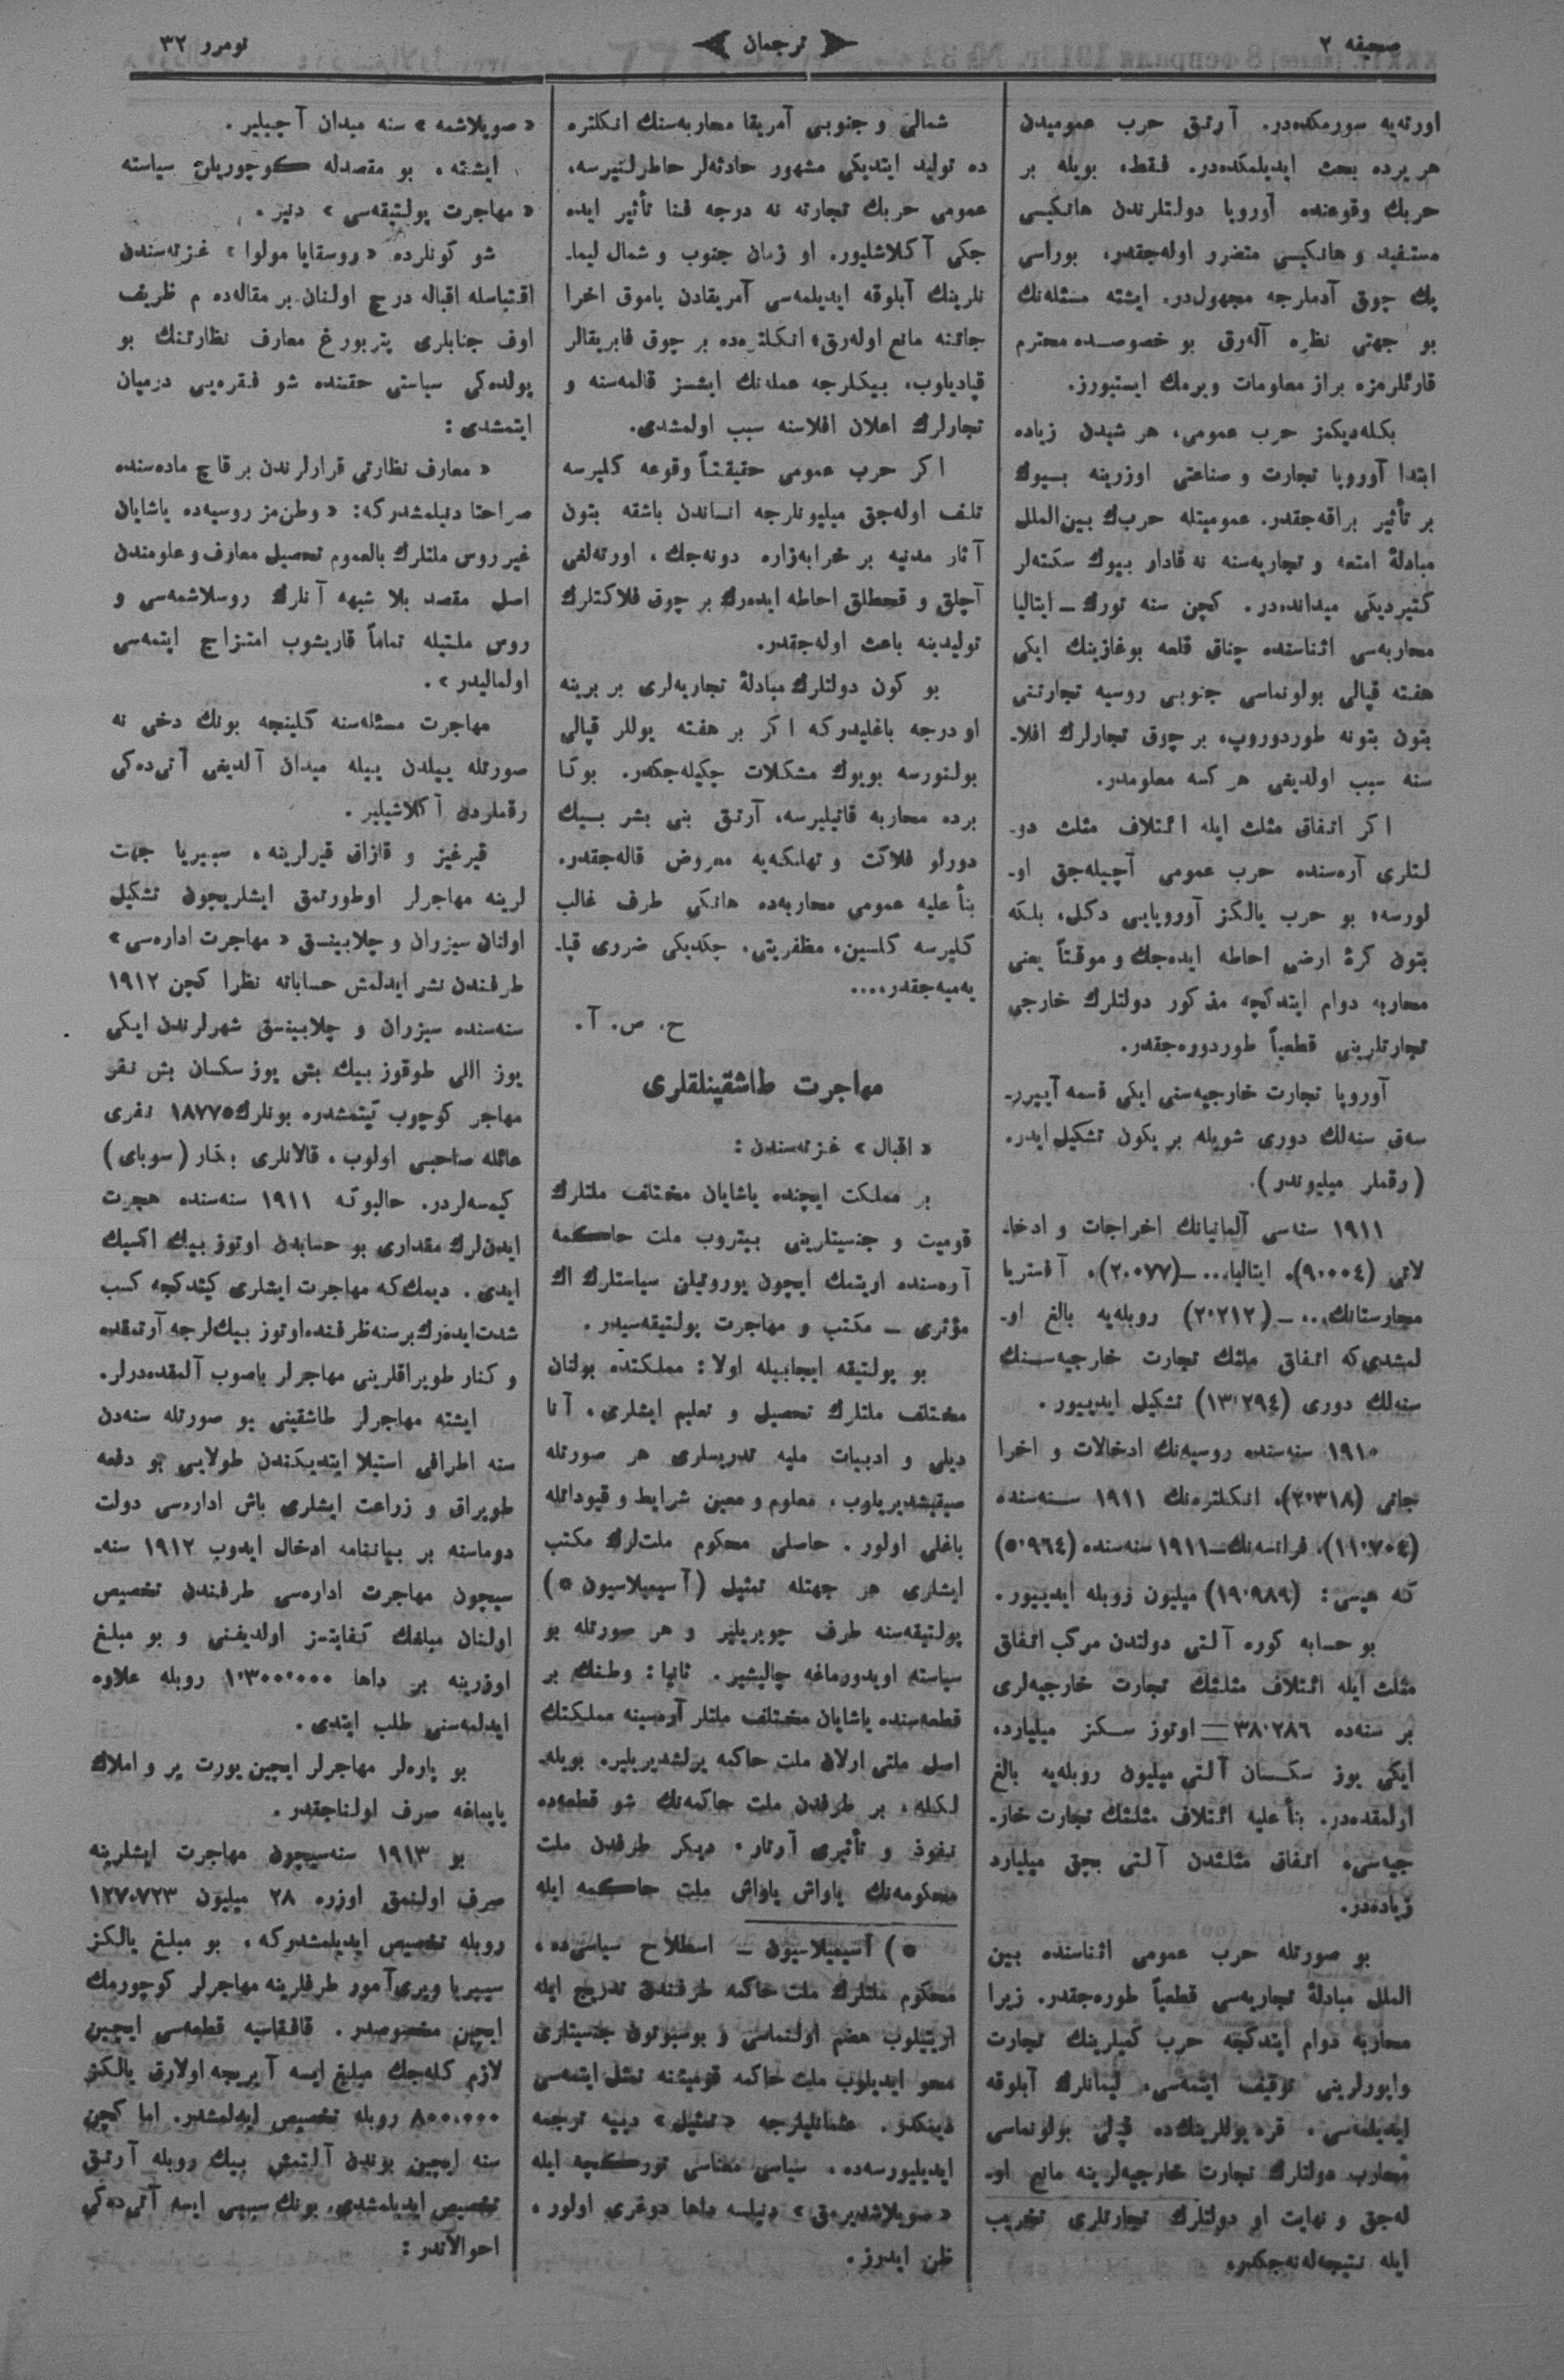 صحیفه ٢
ترجمان
نومرو ٣٢
اورته‌یه سورمکده‌در. آرتق حرب عمومیدن
هر یرده بحث ایدیلمکده‌در. فقط، بویله بر
حربك وقوعنده آوروپا دولتلرندن هانکیسی
مستفید و هانکیسی متضرر اوله‌جقدر، بوراسی
پك چوق آدملرجه مجهول‌در. ایشته مسئله‌نك
بو جهتی نظره آله‌رق بو خصوصده محترم
قارئلرمزه براز معلومات ویرمك ایستیورز.
بکله‌دیکمز حرب عمومی، هر شیدن زیاده
ابتدا آوروپا تجارت و صناعتی اوزرینه بیوك
بر تأثیر براقه‌جقدر. عمومیتله حرب‌ك بین‌الملل
مبادلهٔ امتعه و تجاریه‌سنه نه قادار بیوك سکته‌لر
کتیردیکی میدانده‌در. کچن سنه تورك ـ ایتالیا
محاربه‌سی اثناسنده چناق قلعه بوغازینك ایکی
هفته قپالی بولونماسی جنوبی روسیه تجارتنی
بتون بتونه طوردوروپ، بر چوق تجارلرك افلا-
سنه سبب اولدیغی هر کسه معلومدر.
اکر اتفاق مثلث ایله ائتلاف مثلث دو-
لتلری آره‌سنده حرب عمومی آچیله‌جق او-
لورسه، بو حرب یالکز آوروپایی دکل، بلکه
بتون کرهٔ ارضی احاطه ایده‌جك و موقتاً یعنی
محاربه دوام ایتدکچه مذکور دولتلرك خارجی
تجارتلرینی قطعیاً طوردوره‌جقدر.
آوروپا تجارت خارجیه‌سنی ایکی قسمه آییرر-
سه‌ق سنه‌لك دوری شویله بر یکون تشکیل ایدر.
(رقملر میلیوندر).
١٩١١ سنه‌سی آلمانیانك اخراجات و ادخا-
لاتی (٩٠٠٠٤). ایتالیا... ـ(٢٠٠٧٧). آفستریا
مجارستانك... ـ (٢٠٢١٢) روبله‌یه بالغ او-
لمشدی‌که اتفاق مثلثك تجارت خارجیه‌سنك
سنه‌لك دوری (١٣٠٢٩٤) تشکیل ایدییور.
١٩١٠ سنه‌سنده روسیه‌نك ادخالات و اخرا
جاتی (٢٠٣١٨). انکلتره‌نك ١٩١١ سنه‌سنده
(١١٠٧٠٤)، فرانسه‌نك ـ ١٩١١ سنه‌سنده (٥٠٩٦٤)
که هپسی: (١٩٠٩٨٩) میلیون روبله ایدییور.
بو حسابه کوره آلتی دولتدن مرکب اتفاق
مثلث ایله ائتلاف مثلثك تجارت خارجیه‌لری
بر سنه‌ده ٣٨٠٢٨٦ = اوتوز سکز میلیارد،
ایکی یوز سکسان آلتی میلیون روبله‌یه بالغ
اولمقده‌در. بنأ علیه ائتلاف مثلثك تجارت خار-
جیه‌سی، اتفاق مثلثدن آلتی بچق میلیارد
زیاده‌در.
بو صورتله حرب عمومی اثناسنده بین
الملل مبادلهٔ تجاریه‌سی قطعیاً طوره‌جقدر. زیرا
محاربه دوام ایتدکچه حرب کمیلرینك تجارت
واپورلرینی توقیف ایتمه‌سی، لیمانلرك آبلوقه
ایدیلمه‌سی، قره یوللرینك‌ده قپالی بولونماسی
محارب دولتلرك تجارت خارجیه‌لرینه مانع او-
له‌جق و نهایت او دولتلرك تجارتلری تخریب
ایله نتیجه‌له‌نه‌جکدر.
شمالی و جنوبی آمریقا محاربه‌سنك انکلتره
ده تولید ایتدیکی مشهور حادثه‌لر خاطرلنیرسه،
عمومی حربك تجارته نه درجه فنا تأثیر ایده
جکی آکلاشلیور. او زمان جنوب و شمال لیما-
نلرینك آبلوقه ایدیلمه‌سی آمریقادن پاموق اخرا
جاتنه مانع اوله‌رق، انکلتره‌ده بر چوق فابریقالر
قپادیلوب، بیکلرجه عمله‌نك ایشسز قالمه‌سنه و
تجارلرك اعلان افلاسنه سبب اولمشدی.
اکر حرب عمومی حقیقتاً وقوعه کلیرسه
تلف اوله‌جق میلیونلرجه انساندن باشقه بتون
آثار مدنیه بر خرابه‌زاره دونه‌جك، اورته‌لغی
آچلق و قحطلق احاطه ایده‌رك بر چوق فلاکتلرك
تولیدینه باعث اوله‌جقدر.
بو کون دولتلرك مبادلهٔ تجاریه‌لری بر برینه
او درجه باغلیدرکه اکر بر هفته یوللر قپالی
بولنورسه بویوك مشکلات چکیله‌جکدر. بوکا
برده محاربه قاتیلیرسه، آرتق بنی بشر بیك
دورلو فلاکت و تهلکه‌یه معروض قاله‌جقدر.
بنأ علیه عمومی محاربه‌ده هانکی طرف غالب
کلیرسه کلسین، مظفریتی، چکدیکی ضرری قپا-
یه‌میه‌جقدر....
ح. ص. آ.
مهاجرت طاشقینلقلری
« اقبال » غزته‌سندن :
بر مملکت ایچنده یاشایان مختلف ملتلرك
قومیت و جنسیتلرینی بیتروب ملت حاکمه
آره‌سنده اریتمك ایچون یوروتیلن سیاستلرك اك
مؤثری ـ مکتب و مهاجرت پولتیقه‌سیدر.
بو پولتیقه ایجابیله اولا: مملکتده بولنان
مختلف ملتلرك تحصیل و تعلیم ایشلری، آنا
دیلی و ادبیات ملیه تدریسلری هر صورتله
صیقیشدیریلوب، معلوم و معین شرایط و قیوداتله
باغلی اولور. حاصلی محکوم ملت‌لرك مکتب
ایشلری هر جهتله تمثیل (آسیمیلاسیون *)
پولتیقه‌سنه طرف چویریلیر و هر صورتله بو
سیاسته اویدورماغه چالیشیر. ثانیا: وطنك بر
قطعه‌سنده یاشایان مختلف ملتلر آره‌سینه مملکتك
اصل ملتی اولان ملت حاکمه یرلشدیریلیر. بویله-
لکله، بر طرفدن ملت حاکمه‌نك شو قطعه‌ده
نفوذ و تأثیری آرتار، دیکر طرفدن ملت
محکومه‌نك یاواش یاواش ملت حاکمه ایله
*) آسیمیلاسیون ـ اسطلاح سیاسی‌ده،
محکوم ملتلرك ملت حاکمه طرفندن تدریج ایله
اریتیلوب هضم اولنماسی و بوسبوتون جنسیتلری
محو ایدیلوب ملت حاکمه قومیتنه تمثل ایتمه‌سی
دیمکدر. عثمانلیلرجه « تمثیل » دییه ترجمه
ایدیلیورسه‌ده، سیاسی معناسی تورکچه ایله
« صویلاشدیرمق » دنیلسه داها دوغری اولور،
ظن ایدرز.
« صویلاشمه » سنه میدان آچیلیر.
ایشته، بو مقصدله کوچوریلن سیاسته
« مهاجرت پولتیقه‌سی » دنیر.
شو کونلرده « روسقایا مولوا » غزته‌سندن
اقتباسله اقباله درج اولنان بر مقاله‌ده م ظریف
اوف جنابلری پتربورغ معارف نظارتنك بو
یولده‌کی سیاستی حقینده شو فقره‌یی درمیان
ایتمشدی :
« معارف نظارتی قرارلرندن بر قاچ ماده‌سنده
صراحتا دنیلمشدرکه: « وطن‌مز روسیه‌ده یاشایان
غیر روس ملتلرك بالعموم تحصیل معارف و علومندن
اصل مقصد بلا شبهه آنلرك روسلاشمه‌سی و
روس ملتیله تماماً قاریشوب امتزاج ایتمه‌سی
اولمالیدر ».
مهاجرت مسئله‌سنه کلینجه بونك دخی نه
صورتله ییلدن ییله میدان آلدیغی آتی‌ده‌کی
رقملردن آکلاشیلیر.
قیرغیز و قازاق قیرلرینه، سیبریا جهت
لرینه مهاجرلر اوطورتمق ایشلریچون تشکیل
اولنان سیزران و چلابینسق « مهاجرت اداره‌سی »
طرفندن نشر ایدلمش حساباته نظرا کچن ١٩١٢
سنه‌سنده سیزران و چلابینسق شهرلرندن ایکی
یوز اللی طوقوز بیك بش یوز سکسان بش نفر
مهاجر کوچوب کیتمشدر، بونلرك ١٨٧٧٥ نفری
عائله صاحبی اولوب، قالانلری بخار (سوبای)
کیمسه‌لردر. حالبوکه ١٩١١ سنه‌سنده هجرت
ایدن‌لرك مقداری بو حسابدن اوتوز بیك اکسیك
ایدی. دیمك‌که مهاجرت ایشلری کیتدکجه کسب
شدت ایده‌رك بر سنه ظرفنده اوتوز بیك‌لرجه آرتمقده
و کنار طوپراقلرینی مهاجرلر باصوب آلمقده‌درلر.
ایشته مهاجرلر طاشقینی بو صورتله سنه‌دن
سنه اطرافی استیلا ایتدیکندن طولایی بو دفعه
طوپراق و زراعت ایشلری باش اداره‌سی دولت
دوماسنه بر بیاننامه ادخال ایدوب ١٩١٢ سنه-
سیچون مهاجرت اداره‌سی طرفندن تخصیص
اولنان مبلغك کفایتسز اولدیغنی و بو مبلغ
اوزرینه بر داها ١٠٣٠٠٠٠٠٠ روبله علاوه
ایدلمه‌سنی طلب ایتدی.
بو پاره‌لر مهاجرلر ایچین یورت یر و املاك
یاپماغه صرف اولناجقدر.
بو ١٩١٣ سنه‌سیچون مهاجرت ایشلرینه
صرف اولنمق اوزره ٢٨ میلیون ١٢٧٠٧٢٣
روبله تخصیص ایدیلمشدرکه، بو مبلغ یالکز
سیبریا و پری‌آمور طرفلرینه مهاجرلر کوچورمك
ایچین مخصوصدر. قافقاسیه قطعه‌سی ایچین
لازم کله‌جك مبلغ ایسه آیریجه اولارق یالکز
٨٠٠٠٠٠٠ روبله تخصیص ایدلمشدیر. اما کچن
سنه ایچین بوندن آلتمش بیك روبله آرتق
تخصیص ایدیلمشدی. بونك سببی ایسه آتی‌ده‌کی
احوالاتدر :